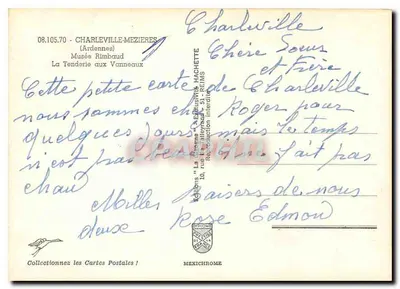 08.105.70 - CHARLEVILLE-MEZIERES
(Ardennes)
Musée Rimbaud
La Tenderie aux Vanneaux
Charleville
Chère Soeur
et Frère
Cette petite carte de Charleville
nous sommes chez Roger pour
quelques jours mais les temps
n'est pas beau il ne fait pas
chaud
Milles Baisers de nous
deux Rose Edmon
HACHETTE
51 - REIMS
Reproduction interdite
Collectionnez les Cartes Postales !
MEXICHROME